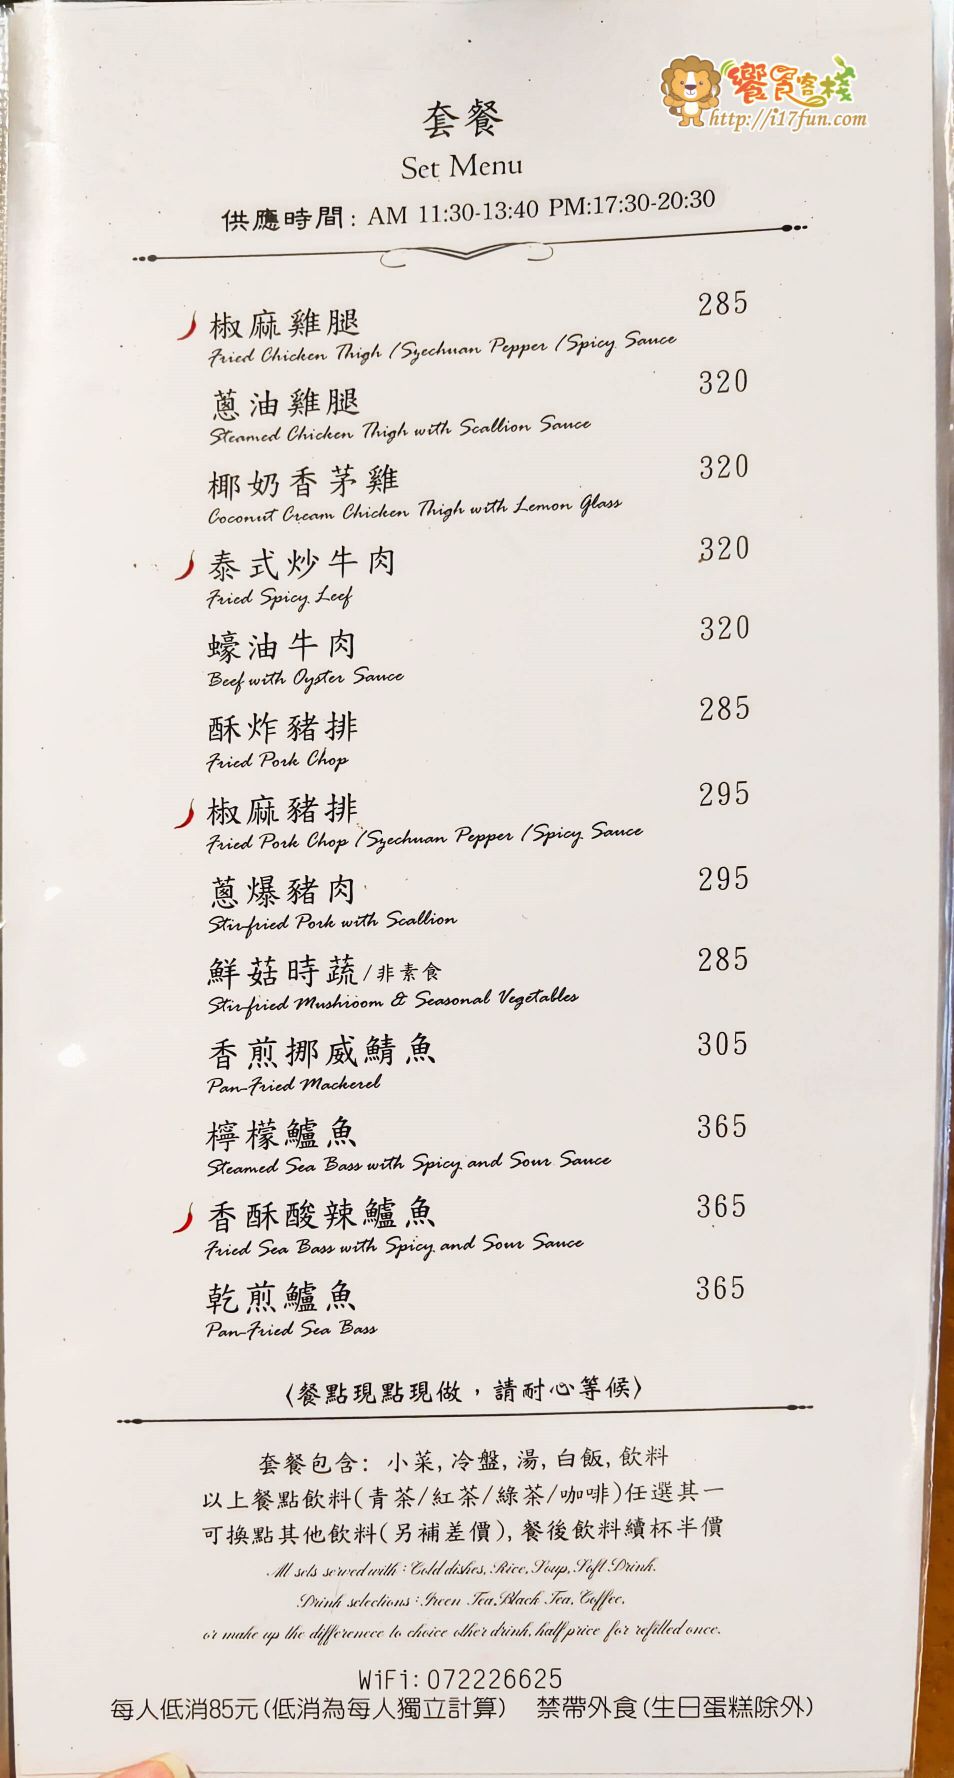 饗食客棧
http://i17fun.com
套餐
Set Menu
供應時間: AM 11:30-13:40 PM:17:30-20:30
椒麻雞腿 285
Fried Chicken Thigh /Szechuan Pepper /Spicy Sauce
蔥油雞腿 320
Steamed Chicken Thigh with Scallion Sauce
椰奶香茅雞 320
Coconut Cream Chicken Thigh with Lemon Glass
泰式炒牛肉 320
Fried Spicy Leef
蠔油牛肉 320
Beef with Oyster Sauce
酥炸豬排 285
Fried Pork Chop
椒麻豬排 295
Fried Pork Chop /Szechuan Pepper /Spicy Sauce
蔥爆豬肉 295
Stir-fried Pork with Scallion
鮮菇時蔬/非素食 285
Stir-fried Mushroom & Seasonal Vegetables
香煎挪威鯖魚 305
Pan-Fried Mackerel
檸檬鱸魚 365
Steamed Sea Bass with Spicy and Sour Sauce
香酥酸辣鱸魚 365
Fried Sea Bass with Spicy and Sour Sauce
乾煎鱸魚 365
Pan-Fried Sea Bass
〈餐點現點現做，請耐心等候〉
套餐包含: 小菜, 冷盤, 湯, 白飯, 飲料
以上餐點飲料(青茶/紅茶/綠茶/咖啡)任選其一
可換點其他飲料(另補差價), 餐後飲料續杯半價
All sets served with : Cold dishes, Rice, Soup, Soft Drink.
Drink selections : Green Tea, Black Tea, Coffee,
or make up the differenece to choice other drink, half price for refilled once.
WiFi: 072226625
每人低消85元(低消為每人獨立計算) 禁帶外食(生日蛋糕除外)